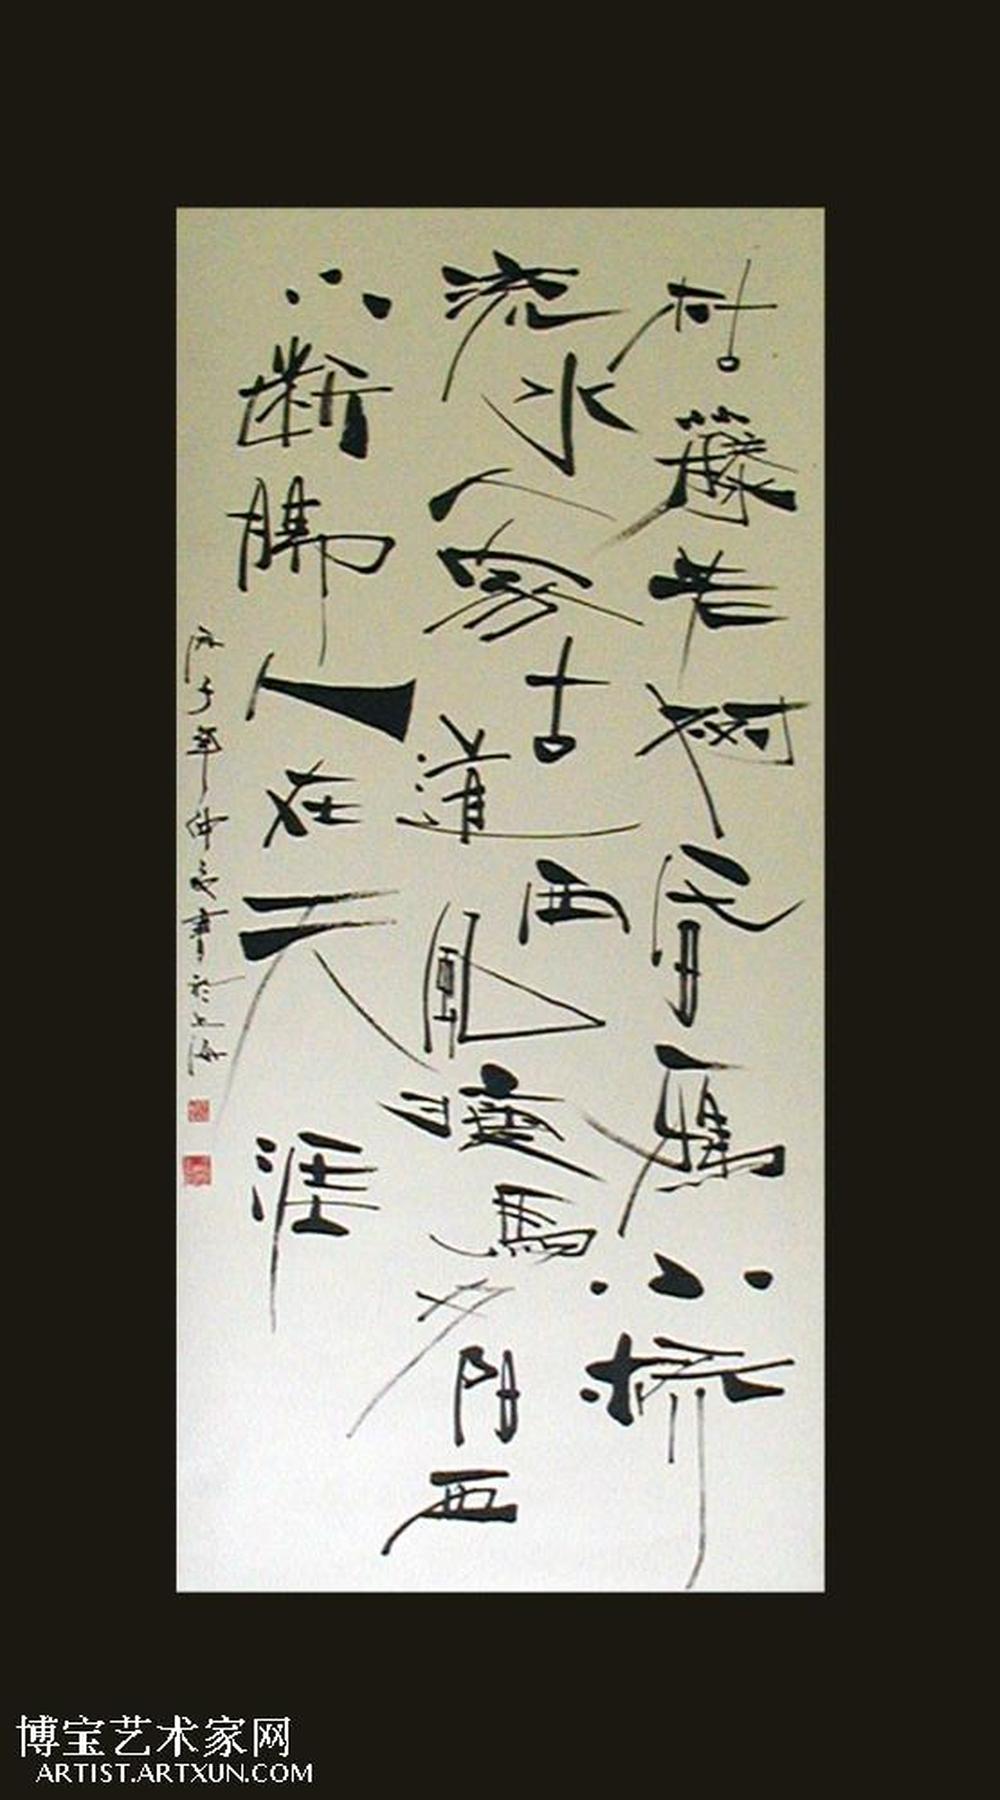 枯籐老树昏鴉小桥
流水人家古道西風瘦馬夕阳西
下断腸人在天涯
子年仲書於上海
博宝艺术家网
ARTIST.ARTXUN.COM